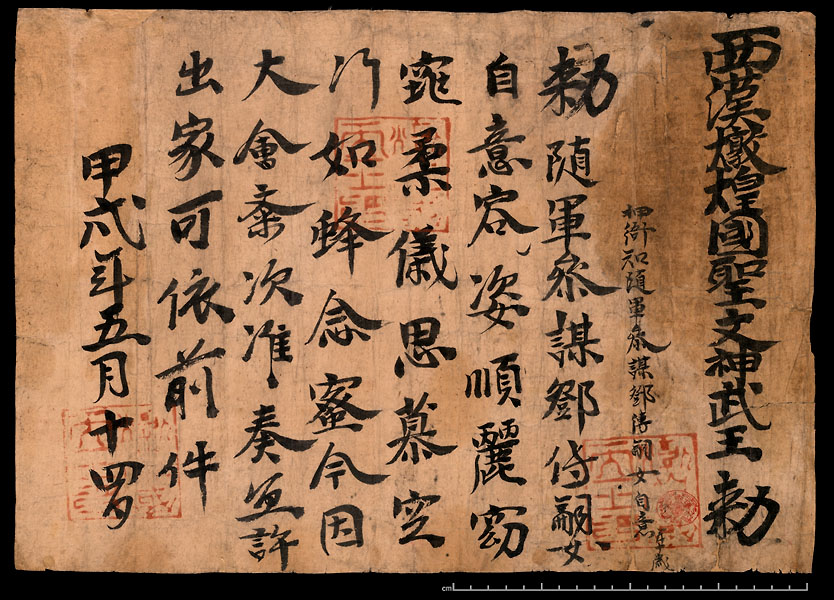 西漢燉煌國聖文神武王勅
押衙知隨軍參謀鄧傳嗣女自意年歲
勅隨軍參謀鄧傳嗣女
自意容姿順麗窈
窕柔儀思慕空
門如蜂念蜜今因
大會齋次准奏宜許
出家可依前件
甲戌年五月十四日